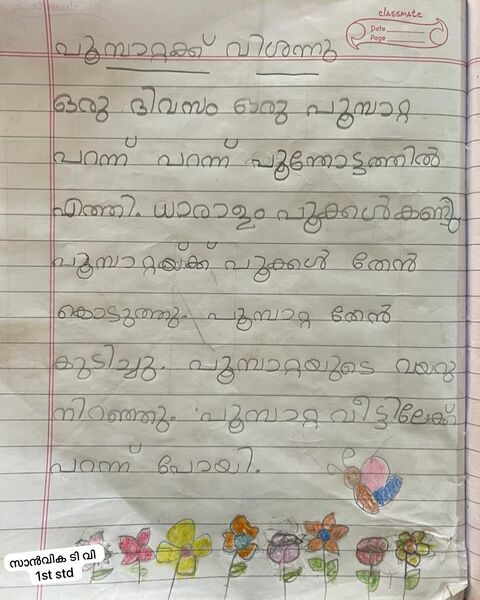 classmate
Date
Page
പൂമ്പാറ്റക്ക് വിശന്നു
ഒരു ദിവസം ഒരു പൂമ്പാറ്റ
പറന്ന് പറന്ന് പൂന്തോട്ടത്തിൽ
എത്തി. ധാരാളം പൂക്കൾ കണ്ടു.
പൂമ്പാറ്റയ്ക്ക് പൂക്കൾ തേൻ
കൊടുത്തു. പൂമ്പാറ്റ തേൻ
കുടിച്ചു. പൂമ്പാറ്റയുടെ വയറു
നിറഞ്ഞു. പൂമ്പാറ്റ വീട്ടിലേക്ക്
പറന്ന് പോയി.
സാൻവിക ടി വി
1st std